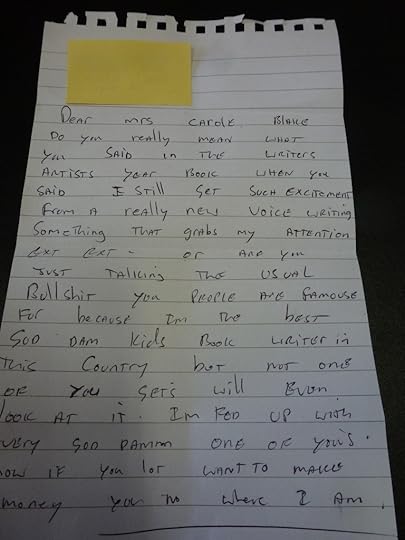 Dear mrs CAROLE BLAKE
Do you really mean what
you SAID in THE WRITERS
ARTISTS YEAR BOOK WHEN you
SAID I STill GET SUCH EXCITEMENT
From A really new Voice writing
Something THAT grabs my ATTENTION
EXT EXT - or ARE you
JUST TAlking THE USUAL
Bullshit you PEOPLE ARE FAMOUSE
For because Im THE best
GOD DAM Kids Book writer in
This Country but not one
OF you GETS will EVEN
look AT it. Im FED UP with
VERY GOD DAMM ONE OF YOU'S.
OW IF you lot WANT TO MAKE
money you no where I Am.